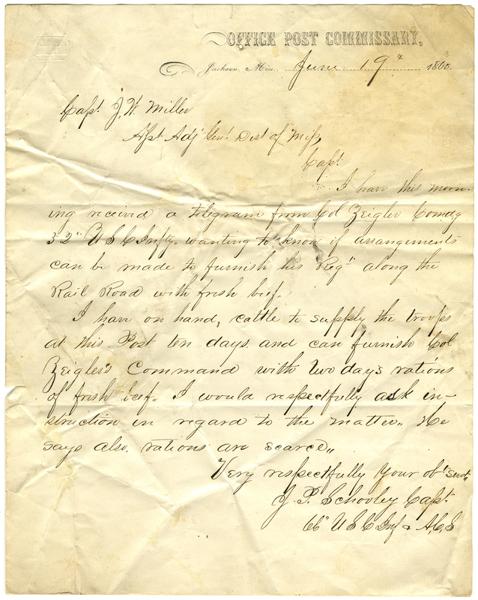 OFFICE POST COMMISSARY,
Jackson, Miss. June 19th 186
Capt J. W. Miller
Asst Adj Genl Dist of Miss,
Capt
I have this morn-
ing received a telegram from Col Zeigler Comdg
52d U S C Infty. wanting to know if arrangements
can be made to furnish his Regt along the
Rail Road with fresh beef.
I have on hand, cattle to supply the troops
at this Post ten days and can furnish Col
Zeiglers Command with two days rations
of fresh beef. I would respectfully ask in-
struction in regard to the matter. He
says also, rations are scarce,,
Very respectfully Your obt Servt
J. P. Schooley Capt
66" U S C Inf & A.C.S